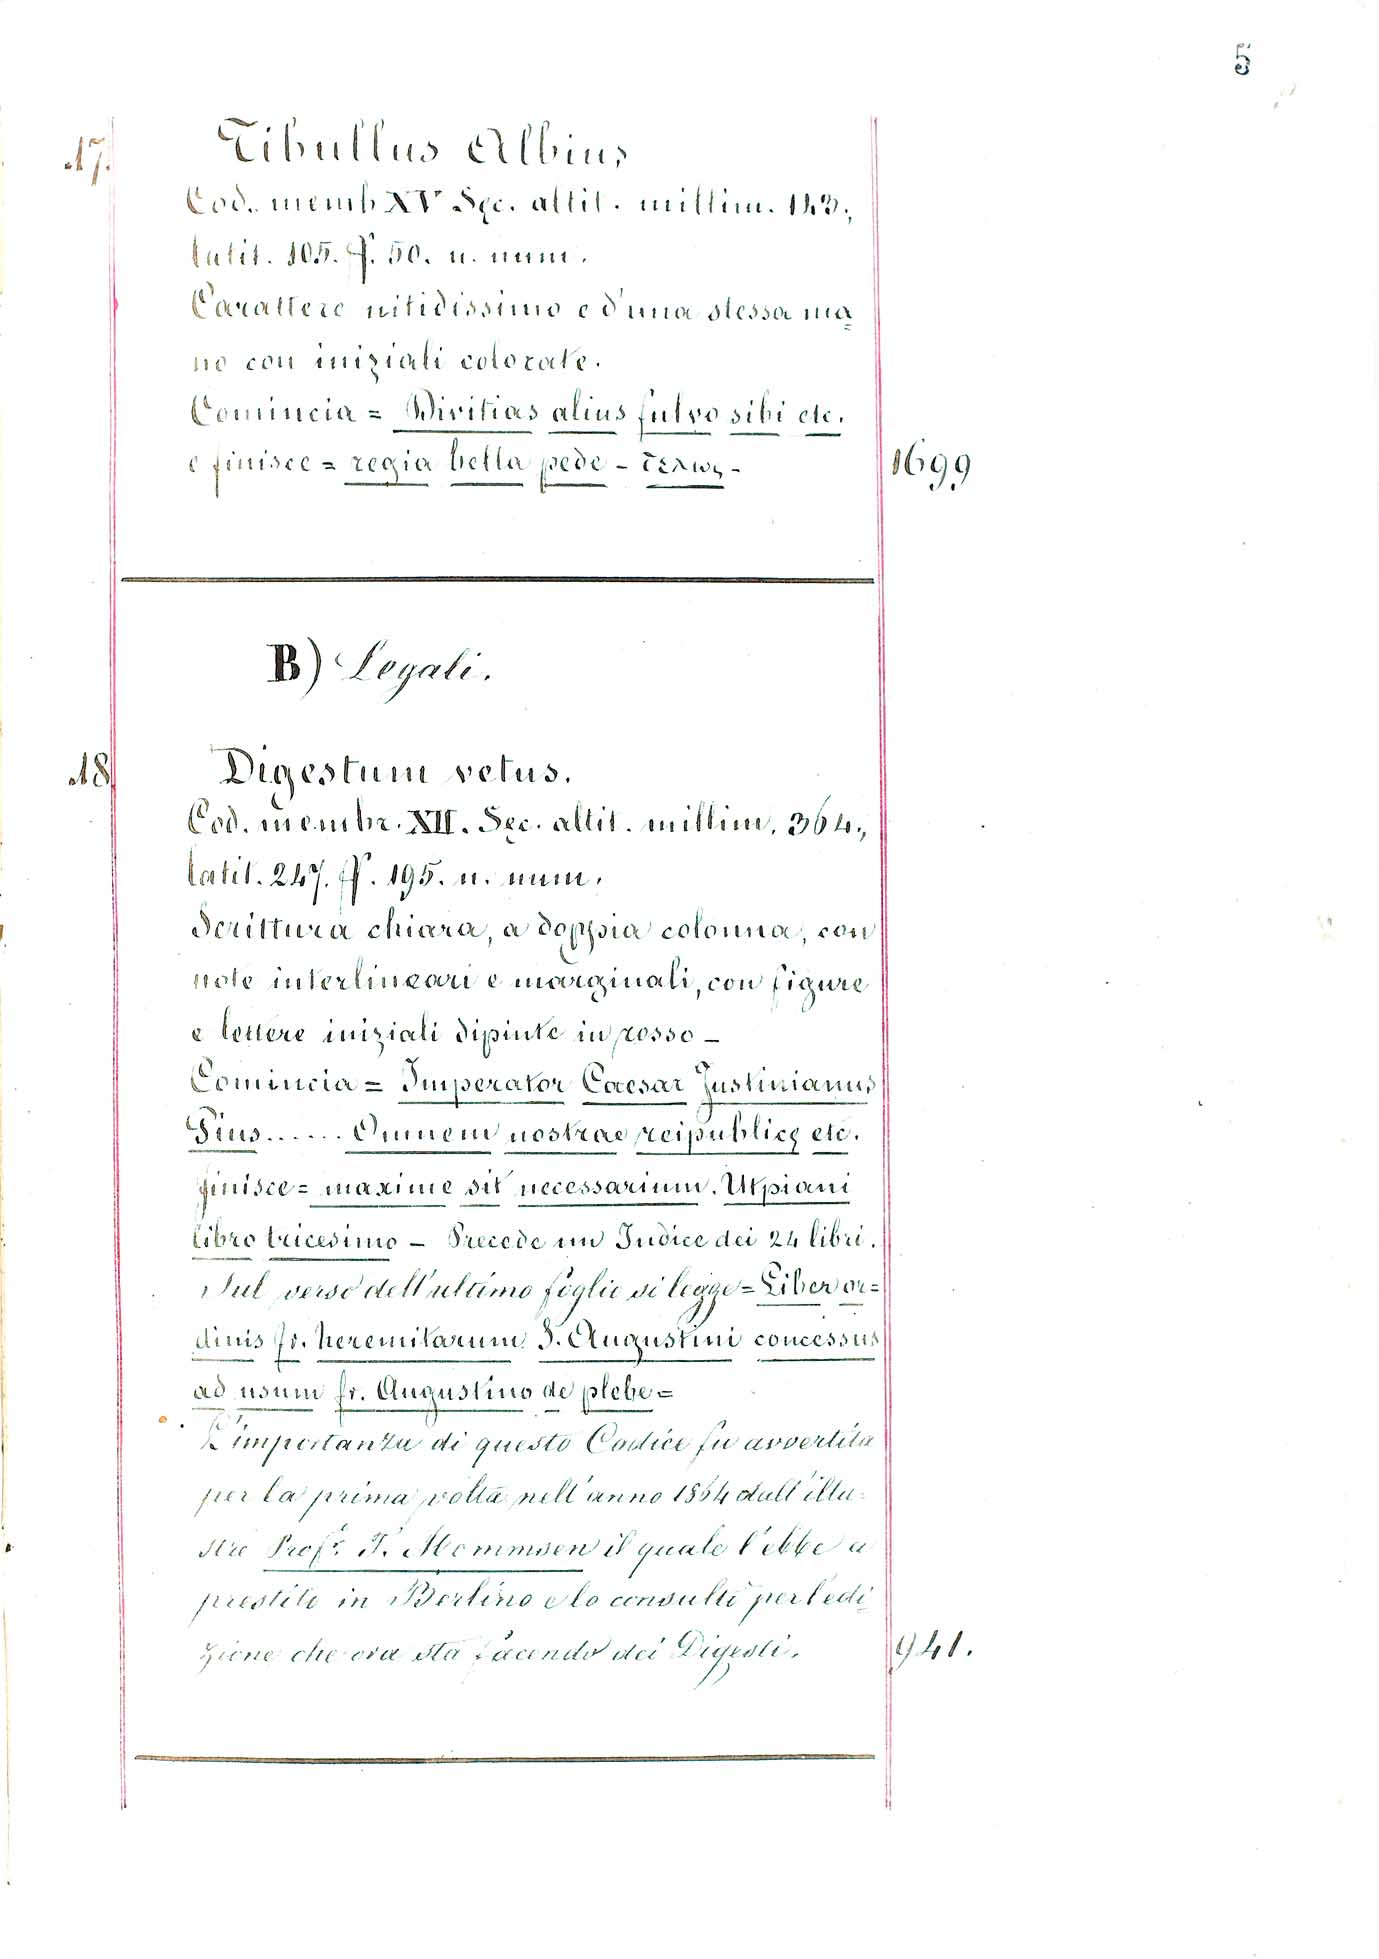 5
17.
Tibullus Albius
Cod. memb XV Sęc. altit. millim. 143.,
latit. 105. ff. 50. n. num.
Carattere nitidissimo e d'una stessa ma=
no con iniziali colorate.
Comincia = Divitias alius fulvo sibi etc.
e finisce = regia bella pede - τελως -
1699
B) Legali.
18
Digestum vetus.
Cod. membr. XII. Sęc. altit. millim. 364.,
latit. 247. ff. 195. n. num.
Scrittura chiara, a doppia colonna, con
note interlineari e marginali, con figure
e lettere iniziali dipinte in rosso -
Comincia = Imperator Caesar Justinianus
Pius...... Omnem nostrae reipublicę etc.
finisce = maxime sit necessarium. Ulpiani
libro tricesimo - Precede un Indice dei 24 libri.
Sul verso dell'ultimo foglio si legge = Liber or=
dinis fr. heremitarum S. Augustini concessus
ad usum fr. Augustino de plebe =
L'importanza di questo Codice fu avvertita
per la prima volta nell'anno 1864 dall'illu=
stre Profr. T. Mommsen il quale l'ebbe a
prestito in Berlino e lo consultò per l'edi=
zione che ora sta facendo dei Digesti.
941.